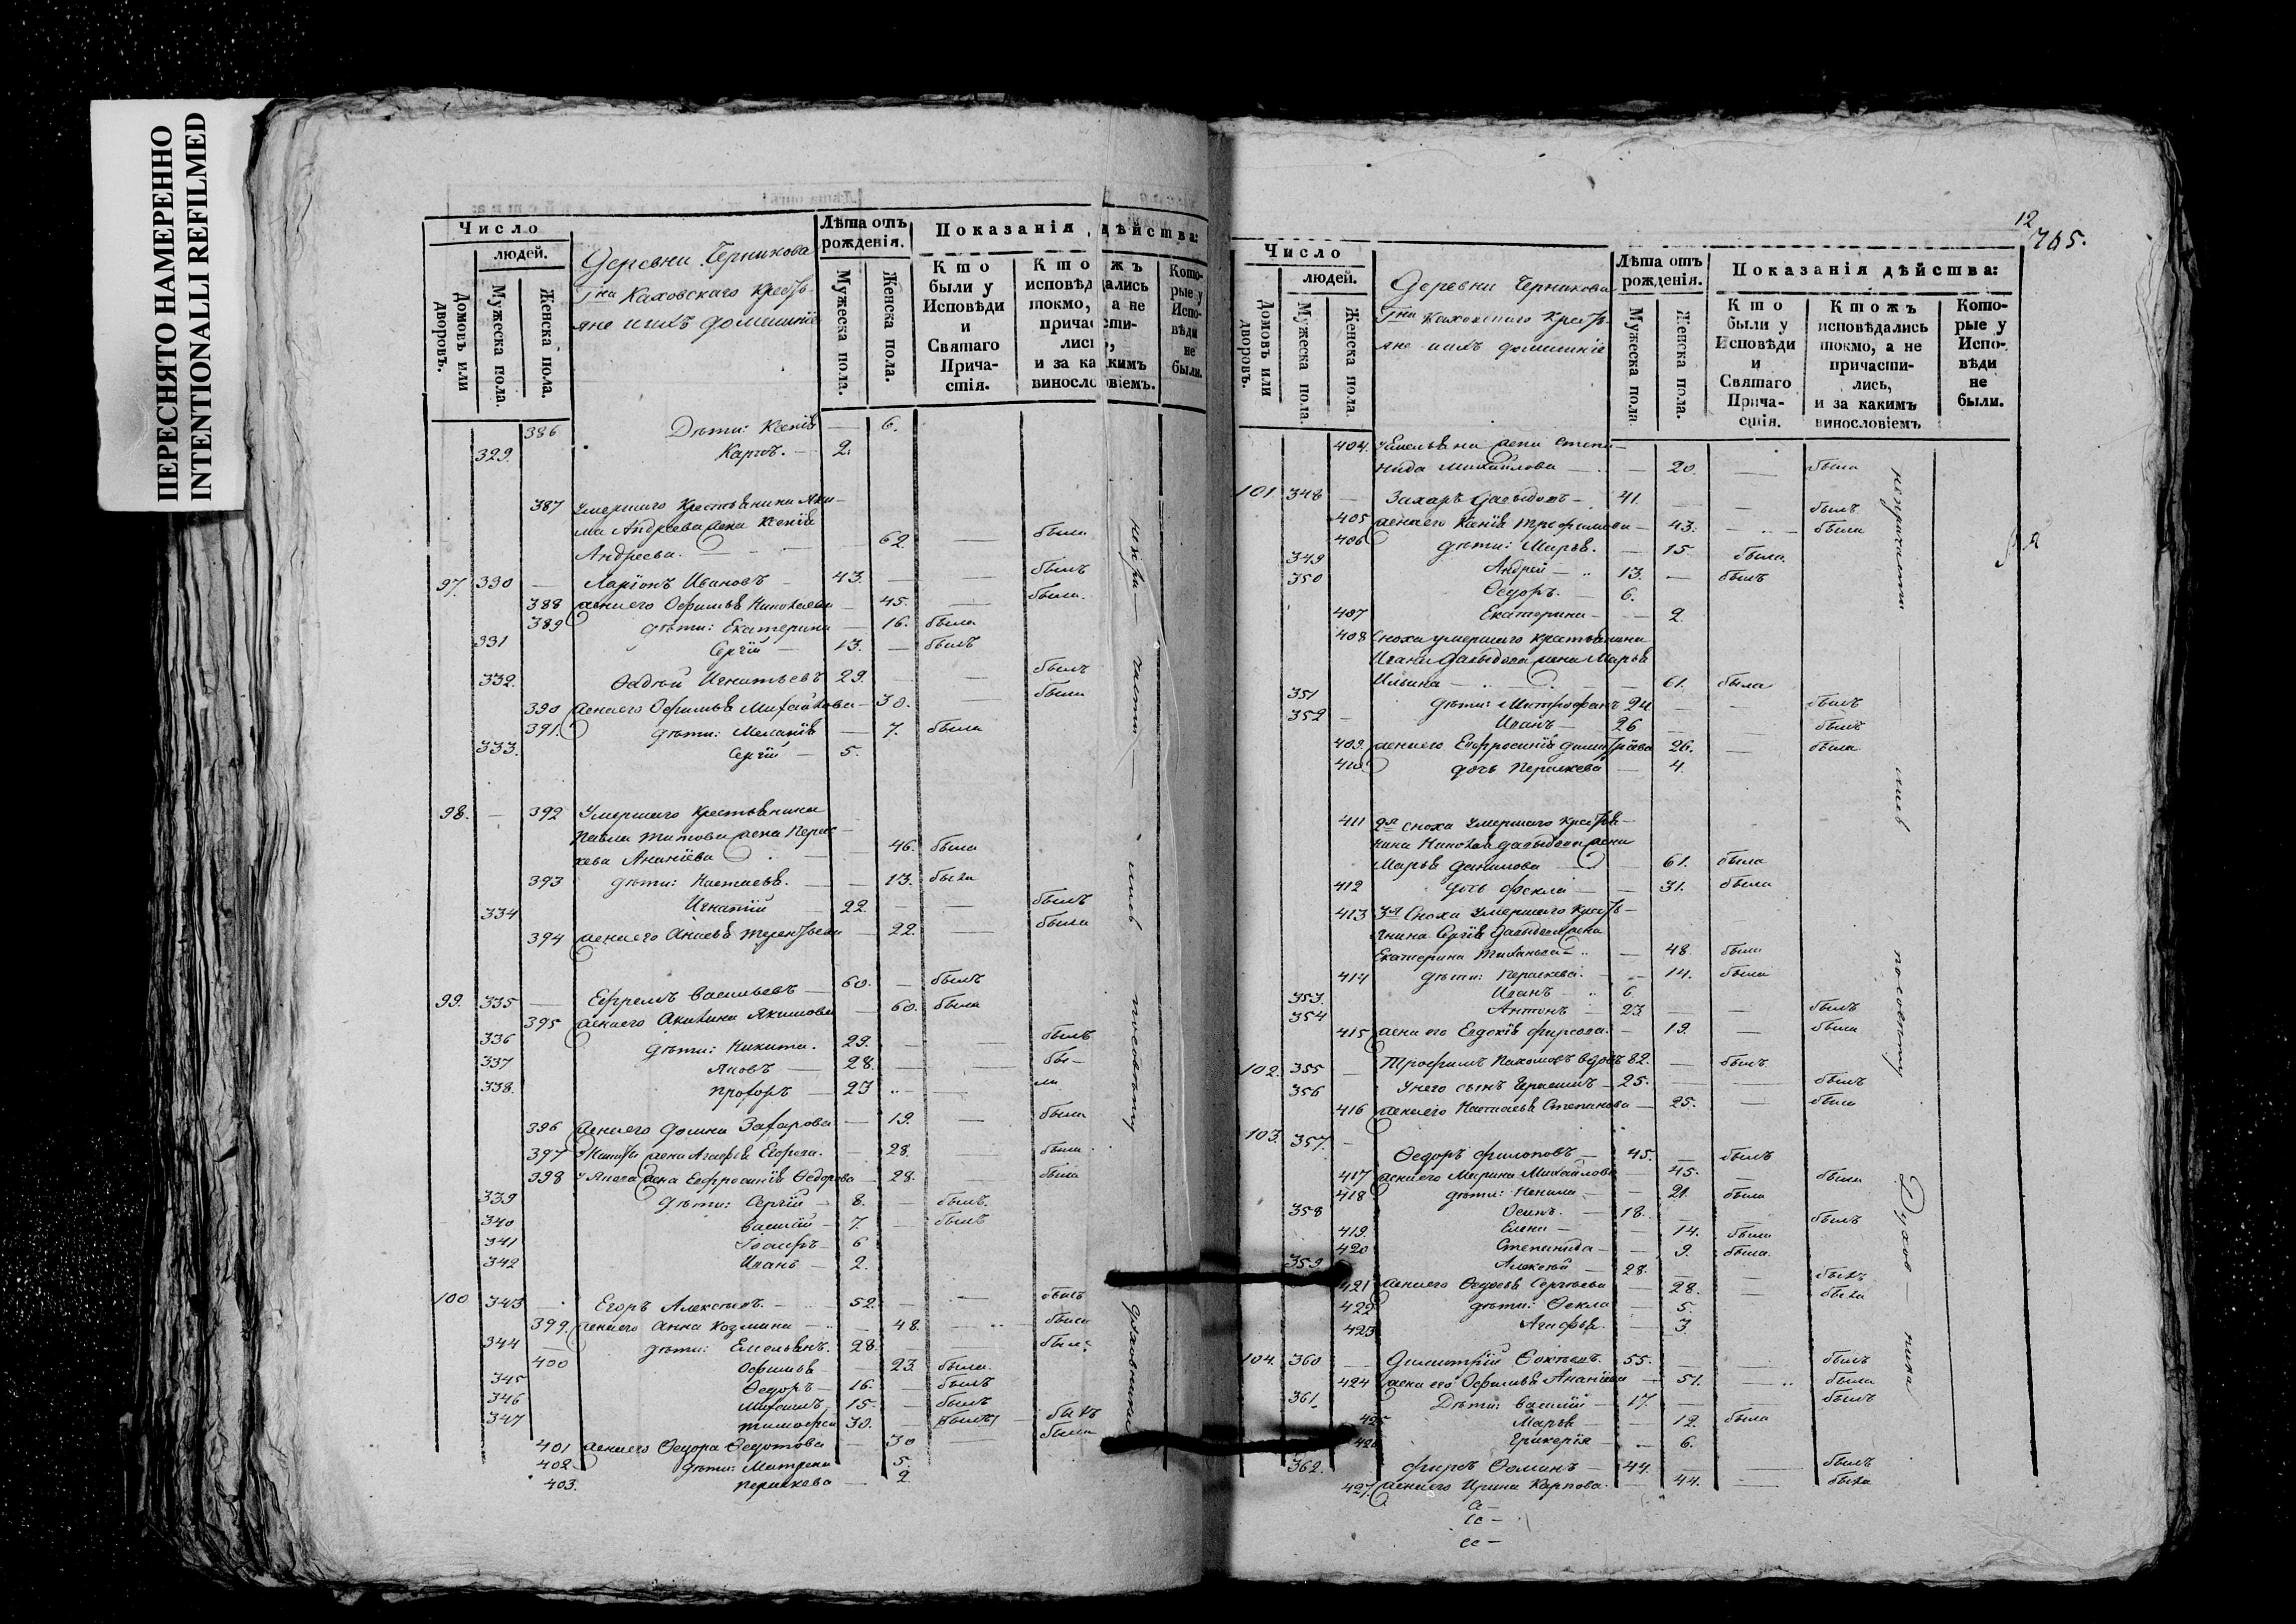 ПЕРЕСНЯТО НАМЕРЕННО
INTENTIONALLI REFILMED
Число
людей.
Домовъ или дворовъ.
Мужеска пола.
Женска пола.
Деревни Черникова
Гна Каховскаго крестья-
яне и ихъ домашніе
Лѣта отъ рожденія.
Мужеска пола.
Женска пола.
Показанія дѣйства:
Кто были у Исповѣди и Святаго Причастія.
Ктожъ исповѣдались токмо, а не причастились, и за какимъ винословіемъ.
Которые у Исповѣди не были.
386 Дѣти: Ксенія — 6.
329. Карпъ. — 2.
387 Умершаго крестьянина Яки-
ма Андреева жена Ксенія
Андреева. — 62. — была
97. 330 — Ларіонъ Ивановъ — 43. — — былъ
388 жена его Ефимья Николаева — 45. — была.
389 дѣти: Екатерина — 16. была
331 Сергій — 13. — былъ
332. Фадѣй Игнатьевъ 29. — — былъ
390 жена его Ефимья Михайлова — 30. — была
391. дѣти: Меланія — 7. была
333. Сергій — 5.
98. — 392 Умершаго крестьянина
Павла Титова жена Парас-
кева Ананіева — 46. была
393 дѣти: Настасья. — 13. была
334 Игнатій 22. — — былъ
394 жена его Анисья Терентьева — 22. — была
99. 335 — Ефремъ Васильевъ — 60. — былъ
395 жена его Акилина Якимова — 60. была
336 дѣти: Никита. 29. — — былъ
337 Яковъ — 28. — — бы-
338. Прохоръ — 23 .. — ли
396 жена его Домна Захарова — 19. — была
397 Никиты жена Агафья Егорова. — 28. — была.
398 У Якова жена Евфросинія Ѳедорова — 28. — была
339 дѣти: Сергій — 8. — былъ.
340 Василій — 7. — былъ
341 Іосифъ — 6
342 Иванъ — 2.
100 343 — Егоръ Алексѣевъ. — 52. — — былъ
399. жена его Анна Козмина — 48. — была
344 дѣти: Емельянъ. 28. — былъ
400 Ефимья 23 была.
345 Ѳедоръ — 16. — былъ
346 Михаилъ 15. — былъ
347 Тимофей 30. — былъ
401 жена его Ѳедора Ѳедотова — 30 — была
402. дѣти: Матрена 5.
403. Параскева — 2
по совѣту
духовника
12
765.
Число
людей.
Домовъ или дворовъ.
Мужеска пола
Женска пола.
Деревни Черникова
Гна Каховскаго крестья-
яне и ихъ домашніе
Лѣта отъ рожденія.
Мужеска пола
Женска пола.
Показанія дѣйства:
Кто были у Исповѣди и Святаго Причастія.
Ктожъ исповѣдались токмо, а не причастились, и за какимъ винословіемъ
Которые у Исповѣди не были.
404. У Емельяна жена Степа-
нида Михайлова — — 20 — была
101. 348 — Захаръ Давыдовъ — 41. — — былъ
405 жена его Ксенія Трофимова — 43. — была
406 дѣти: Марья. — 15. была.
349 Андрей — 13. — былъ
350 Ѳедоръ. — 6.
407 Екатерина — — 2.
408 Сноха умершаго крестьянина
Ивана Давыдова жена Марья
Ильина — 61. была
351 дѣти: Митрофанъ 24. — — былъ
352 — Иванъ — 26 — — былъ
409. жена его Евфросинія Димитріева 26. — была
410 дочь Параскева — 4.
411 2я сноха умершаго крестья-
нина Николая Давыдова жена
Марья Данилова — 61. была
412 дочь Фекла — — 31. была
413 3я Сноха умершаго крестья-
нина Сергія Давыдова жена
Екатерина Тиханова — .. — 48. была
414 дѣти: Параскева. — 14. была
353. Иванъ — .. 6.
354 Антонъ — 23 — — былъ
415 жена его Евдокія Фирсова. — 19. — была
102. 355 — Трофимъ Пахомовъ вдовъ 82. — былъ.
356 У него сынъ Герасимъ — 25. — — былъ
416 жена его Настасья Степанова — 25. — была
103. 357. — Ѳедоръ Филиповъ — 45. — былъ
417 жена его Марина Михайлова — 45. — была
418 дѣти: Ненила — — 21. была
358 Осипъ. — 18. — былъ
419. Елена — — 14. была
420 Степанида — — 9. была.
359 Алексѣй — 28. — — былъ
421 жена его Ѳедосья Сергѣева — 28. — была
422 дѣти: Ѳекла — 5.
423 Агафья. — 3.
104. 360 — Димитрій Ѳоктевъ. 55. — — былъ
424 жена его Ефимья Ананіева — 51. — была
361. Дѣти: Василій — 17. — — былъ
425 Марья — — 12. была
426 Гликерія — — 6.
362. Фирсъ Ѳоминъ — 44. — — былъ
427. жена его Ирина Карпова. — 44. — была
по совѣту